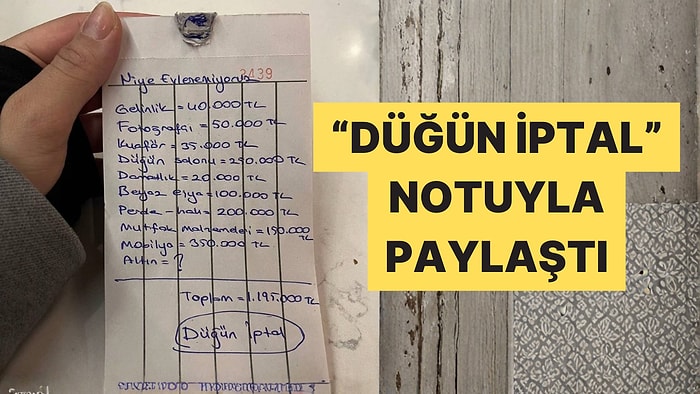 3439
Niye Evlenemiyoruz
Gelinlik = 40.000 TL
Fotoğrafçı = 50.000 TL
Kuaför = 35.000 TL
Düğün salonu = 250.000 TL
Damatlık = 20.000 TL
Beyaz eşya = 100.000 TL
Perde - halı = 200.000 TL
Mutfak malzemesi = 150.000 TL
Mobilya = 350.000 TL
Altın = ?
Toplam = 1.195.000 TL
Düğün iptal
“DÜĞÜN İPTAL”
NOTUYLA
PAYLAŞTI